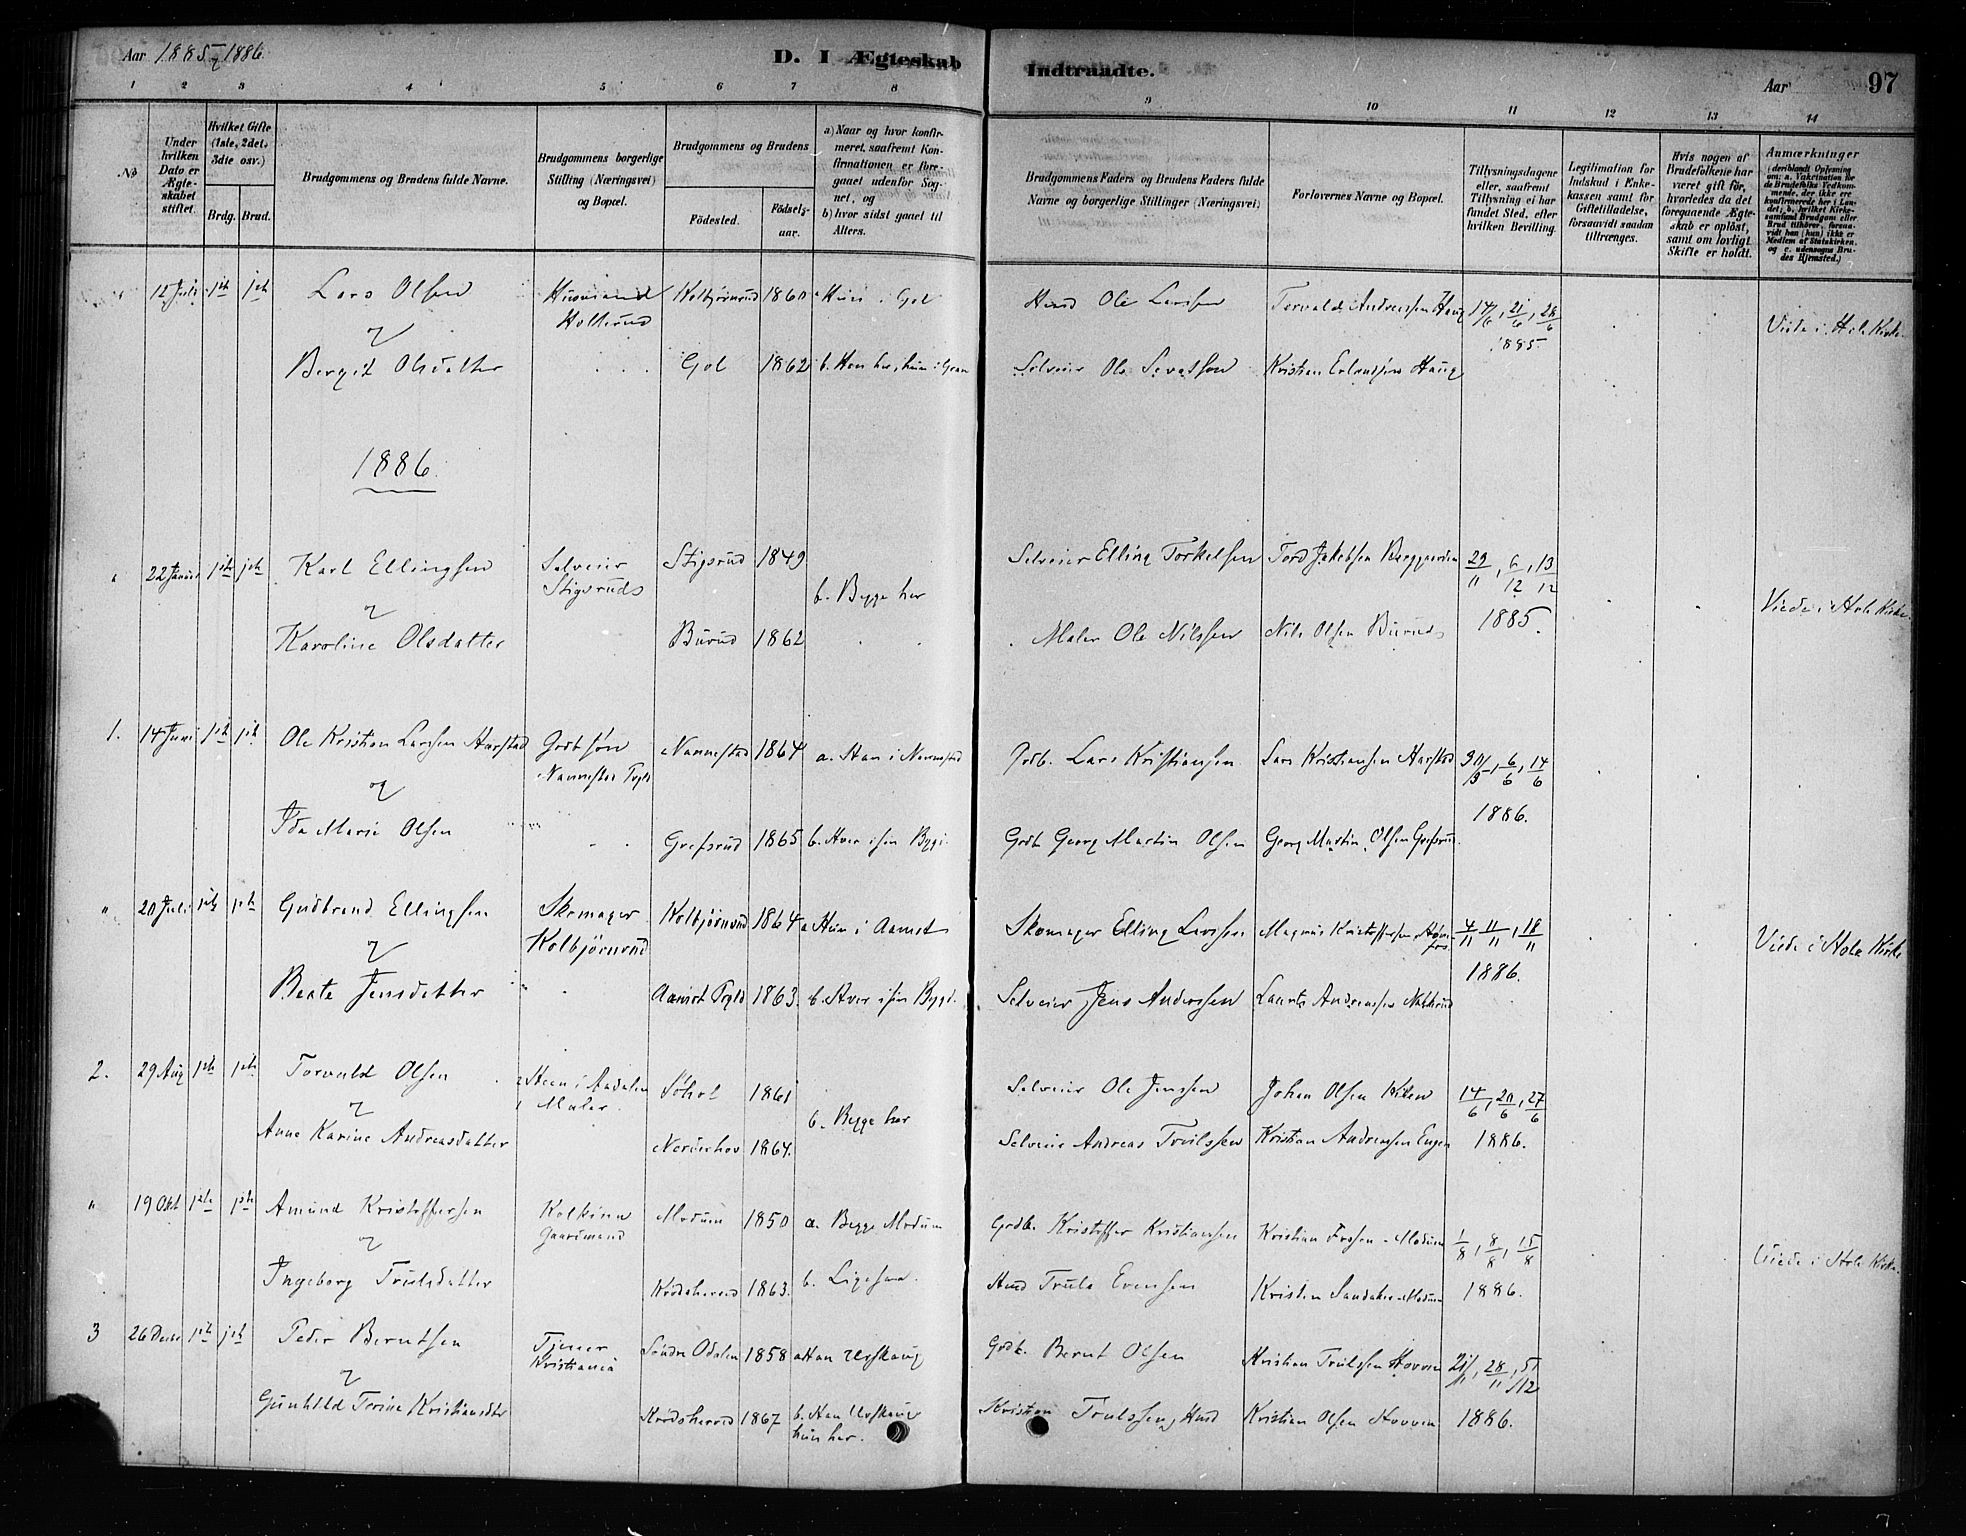 Aar 1885-1886
D. I Ægteskab Indtraadte.
Aar 97
1 2 3 4 5 6 7 8 9 10 11 12 13 14
No
Under hvilken Dato er Ægteskabet stiftet.
Hvilket Gifte (1ste, 2det, 3die osv.)
Brdg. Brud.
Brudgommens og Brudens fulde Navne.
Brudgommens borgerlige Stilling (Næringsvei) og Bopæl.
Brudgommens og Brudens
Fødested.
Fødselsaar.
a) Naar og hvor konfirmeret, saafremt Konfirmationen er foregaaet udenfor Sognet, og
b) hvor sidst gaaet til Alters.
Brudgommens Faders og Brudens Faders fulde Navne og borgerlige Stillinger (Næringsvei)
Forlovernes Navne og Bopæl.
Tillysningsdagene eller, saafremt Tillysning ei har fundet Sted, efter hvilken Bevilling.
Legitimation for Indskud i Enkekassen samt for Giftetilladelse, forsaavidt saadan tiltrænges.
Hvis nogen af Brudefolkene har været gift før, hvorledes da det foregaaende Ægteskab er opløst, samt om lovligt Skifte er holdt.
Anmærkninger
(deriblandt Oplysning om: a. Vakcination for de Brudefolks Vedkommende, der ikke ere konfirmerede her i Landet; b. hvilket Kirkesamfund Brudgom eller Brud tilhører, forsaavidt han (hun) ikke er Medlem af Statskirken, og c. udensogns Brudes Hjemsted.)
" 12 Juli 1ste 1ste Lars Olsen Husmand Kolbjørnrud 1860 a Hun i Gol Husmd Ole Larssen Torvald Andreassen Haug 14/6, 21/6, 28/6
& Hollerud 1885. Viede i Hole Kirke.
Bergit Olsdatter Gol 1862 b. Han her, hun i Gran Selveier Ole Kristian Erlandsen Haug
1886.
" 22 Januar 1ste 1ste Karl Ellingsen Selveier Stigsrud 1849 Selveier Elling Torkelsen Tord Jakobsen 29/11, 6/12, 13/12
& Stigsruds b. Begge her 1885. Viede i Hole Kirke.
Karoline Olsdatter Burud 1862 Maler Ole Nilssen Nils Olsen Burud
1. 14 Juni 1ste 1ste Ole Kristian Larssen Aarstad Grdb søn Nannestad 1864 a. Han i Nannestad Grdb. Lars Kristiansen Lars Kristiansen Aarstad 30/5, 6/6, 14/6
& Nannestad Prgld 1886.
Ida Marie Olsen Grefsrud 1865 b. Hver i sin Bygd. Grdb Georg Martin Olsen Georg Martin Olsen Grefsrud
" 20 Juli 1ste 1ste Gudbrand Ellingsen Skomager Kolbjørnrud 1864 a Hun i Aamot Skomager Elling Larssen Magnus Kristoffersen 4/11 11/11, 18/11
& Kolbjørnrud 1886. Viede i Hole Kirke
Beate Jensdatter Aamot Prgld 1863. b. Hver i sin Bygd. Selveier Jens Anderssen Laurits Andreassen
2. 29 Aug 1ste 1ste Torvald Olsen Steen i Aadalen Søhol 1861 Selveier Ole Jenssen Johan Olsen Kilen 14/6, 20/6, 27/6
& Maler. b. Begge her 1886.
Anne Karine Andreasdatter Norderhov 1864. Selveier Andreas Troilssen Kristian Andreassen Engen
" 19 Okt 1ste 1ste Amund Kristoffersen Kolkinn Modum 1850 a. Begge Modum Grdb. Kristoffer Kristiansen Kristian Fossen - Modum 1/8, 8/8, 15/8
& Gaardmand 1886. Viede i Hole Kirke.
Ingeborg Trulsdatter Krødsherred 1863. b. Ligesaa. Husmd Truls Evensen Kristen Sandaker - Modum
3 26 Decbr 1ste 1ste Peder Berntsen Tjener Søndre Odalen 1858 a Han Urskoug Grdb. Bernt Olsen Kristian Trulssen Hovven 21/11, 28/11, 5/12
& Kristiania 1886.
Gunhild Terine Kristiansdtr Krødsherred 1867 b. Han Urskoug hun her. Kristian Trulssen, Husmd Kristian Olsen Hovven